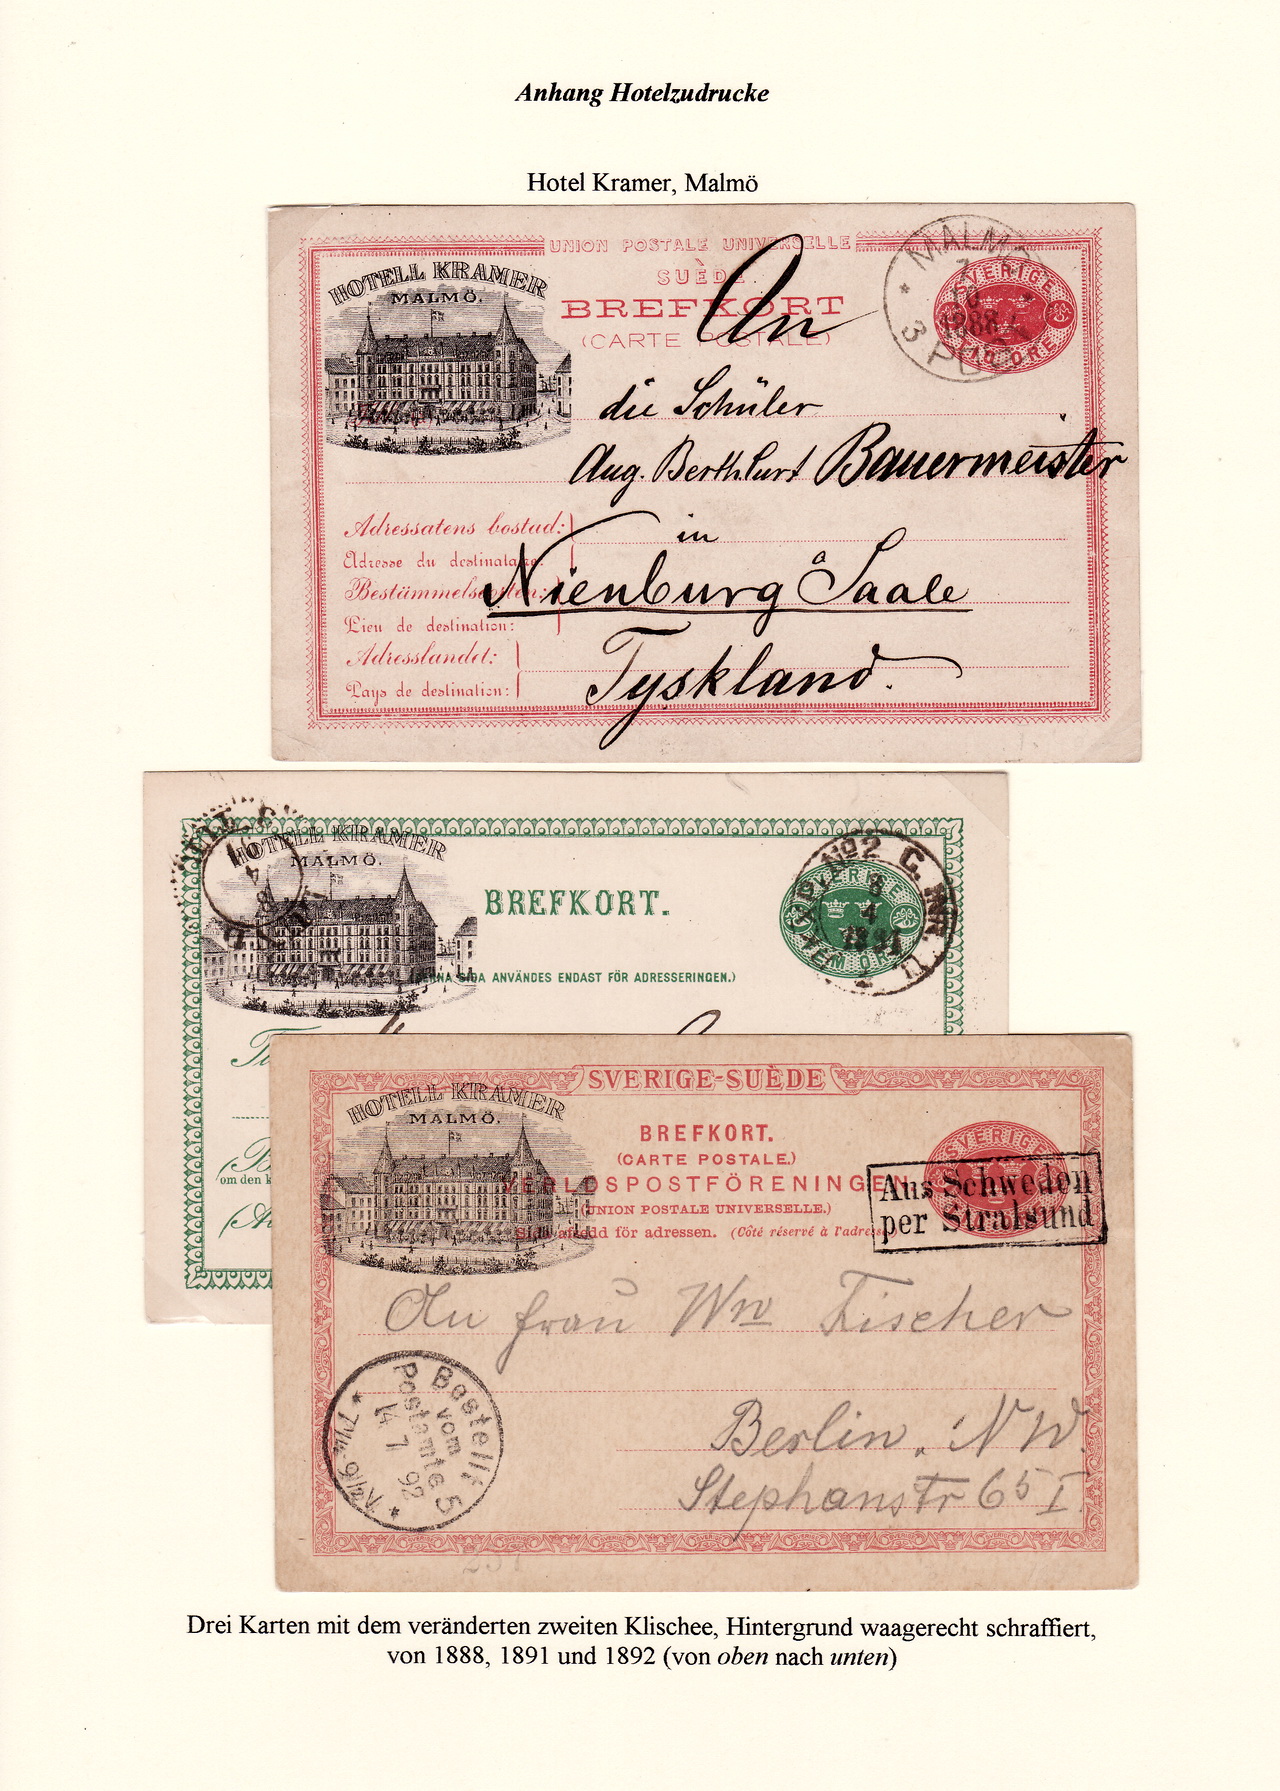 Anhang Hotelzudrucke
Hotel Kramer, Malmö
UNION POSTALE UNIVERSELLE
SUÈDE
BREFKORT
(CARTE POSTALE)
HOTELL KRAMER
MALMÖ.
MALMÖ
1888
3 P
SVERIGE
10 ÖRE
An
die Schüler
Aug. Bauermeister
in
Nienburg a Saale
Tyskland.
Adressatens bostad:
Adresse du destinataire:
Bestämmelseorten:
Lieu de destination:
Adresslandet:
Pays de destination:
HOTELL KRAMER
MALMÖ.
BREFKORT.
SIDA ANVÄNDES ENDAST FÖR ADRESSERINGEN.)
SVERIGE
FEM ÖRE
No 2 C.
8
4
om den
SVERIGE-SUÈDE
HOTELL KRAMER
MALMÖ.
BREFKORT.
(CARTE POSTALE.)
VERLDSPOSTFÖRENINGEN
(UNION POSTALE UNIVERSELLE.)
för adressen. (Côté réservé à l'adresse
SVERIGE
Aus Schweden
per Stralsund
An Frau Ww Fischer
Berlin. NW.
Stephanstr 65 I.
Bestellt
vom
Postamte 5
14 7 92
7 1/4-9 1/2 V.
Drei Karten mit dem veränderten zweiten Klischee, Hintergrund waagerecht schraffiert,
von 1888, 1891 und 1892 (von oben nach unten)